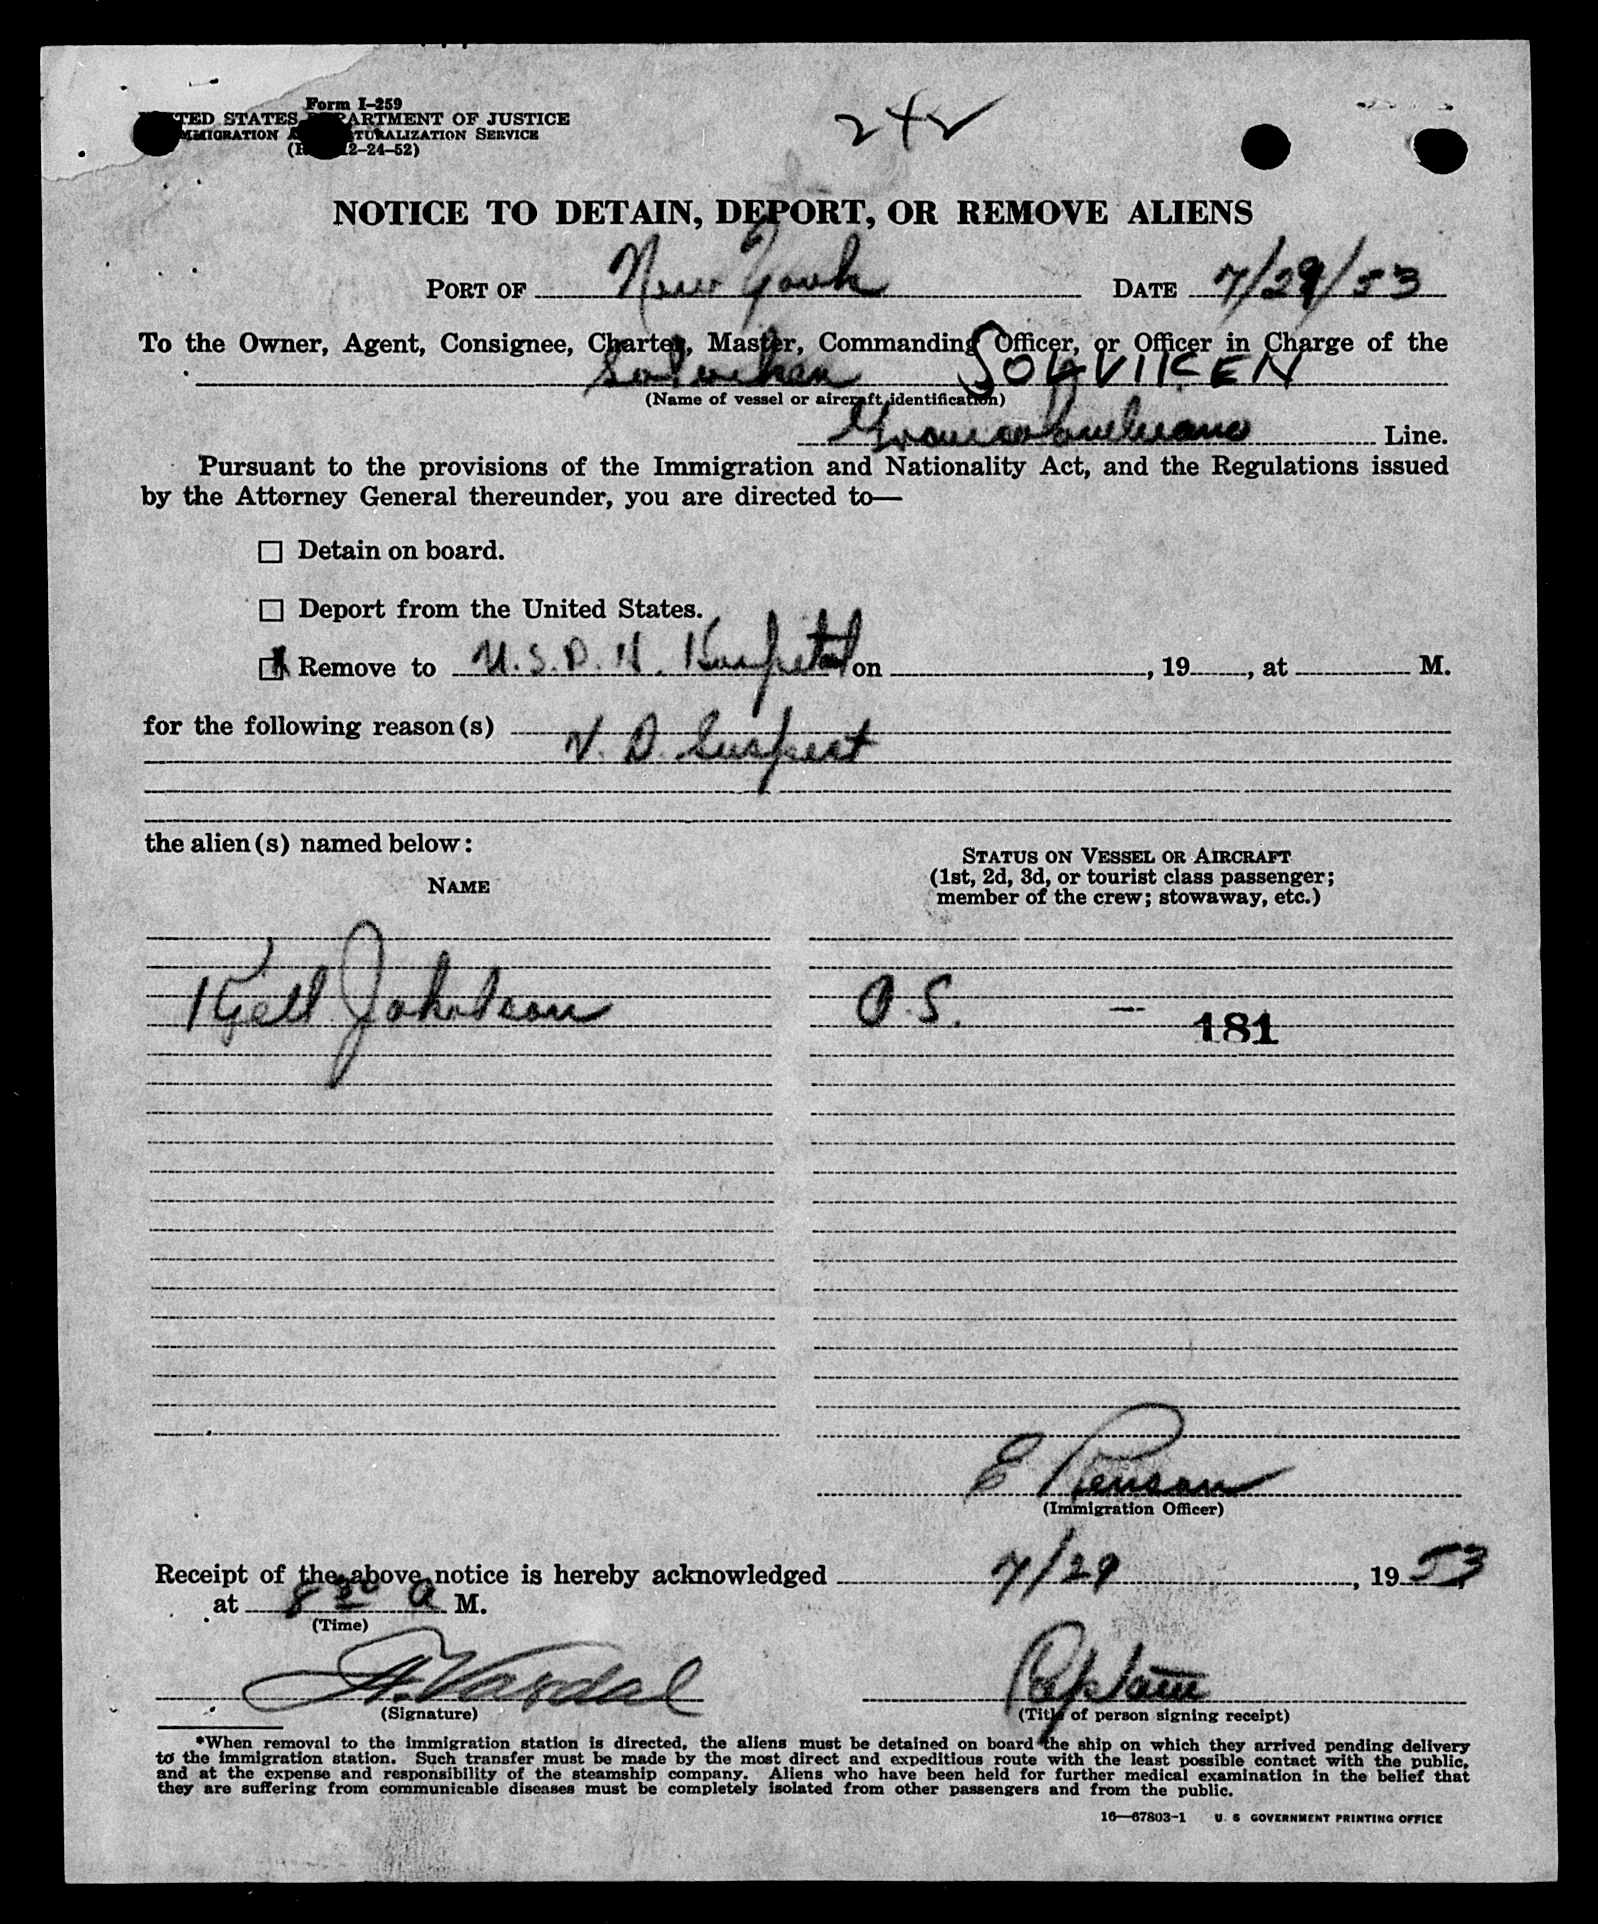 Form I-259
TED STATES ARTMENT OF JUSTICE
MMIGRATION A TURALIZATION SERVICE
2-24-52)
NOTICE TO DETAIN, DEPORT, OR REMOVE ALIENS
PORT OF New York DATE 7/29/53
To the Owner, Agent, Consignee, Charter, Master, Commanding Officer, or Officer in Charge of the
Solviken SOLVIKEN
(Name of vessel or aircraft identification)
Line.
Pursuant to the provisions of the Immigration and Nationality Act, and the Regulations issued
by the Attorney General thereunder, you are directed to—
Detain on board.
Deport from the United States.
Remove to U.S.P.H. Hospital on , 19 , at M.
for the following reason(s)
V. D. Suspect
the alien(s) named below:
STATUS ON VESSEL OR AIRCRAFT
(1st, 2d, 3d, or tourist class passenger;
member of the crew; stowaway, etc.)
NAME
Kjell Johnson O.S. — 181
E
(Immigration Officer)
Receipt of the above notice is hereby acknowledged 7/29, 1953
at 8 30 A M.
(Time)
A. Vardal Captain
(Signature) (Title of person signing receipt)
*When removal to the immigration station is directed, the aliens must be detained on board the ship on which they arrived pending delivery
to the immigration station. Such transfer must be made by the most direct and expeditious route with the least possible contact with the public,
and at the expense and responsibility of the steamship company. Aliens who have been held for further medical examination in the belief that
they are suffering from communicable diseases must be completely isolated from other passengers and from the public.
16—67803-1 U. S GOVERNMENT PRINTING OFFICE